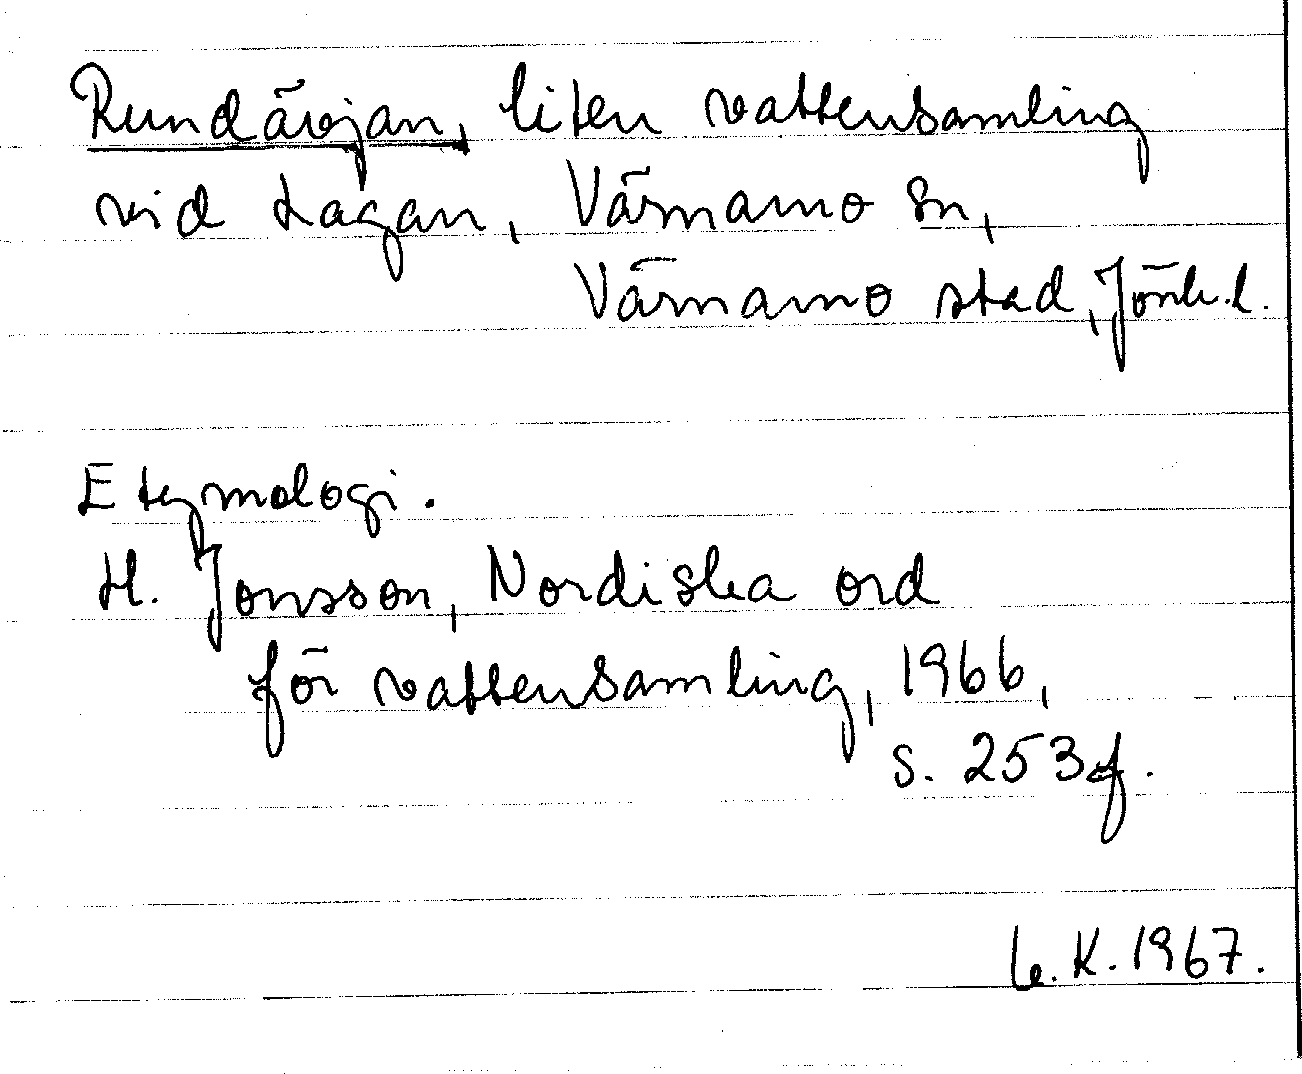 Rundävjan, liten vattensamling
vid Lagan, Värnamo sn,
Värnamo stad, Jönk. l.
Etymologi.
H. Jonsson, Nordiska ord
för vattensamling, 1966,
s. 253 f.
K. 1967.